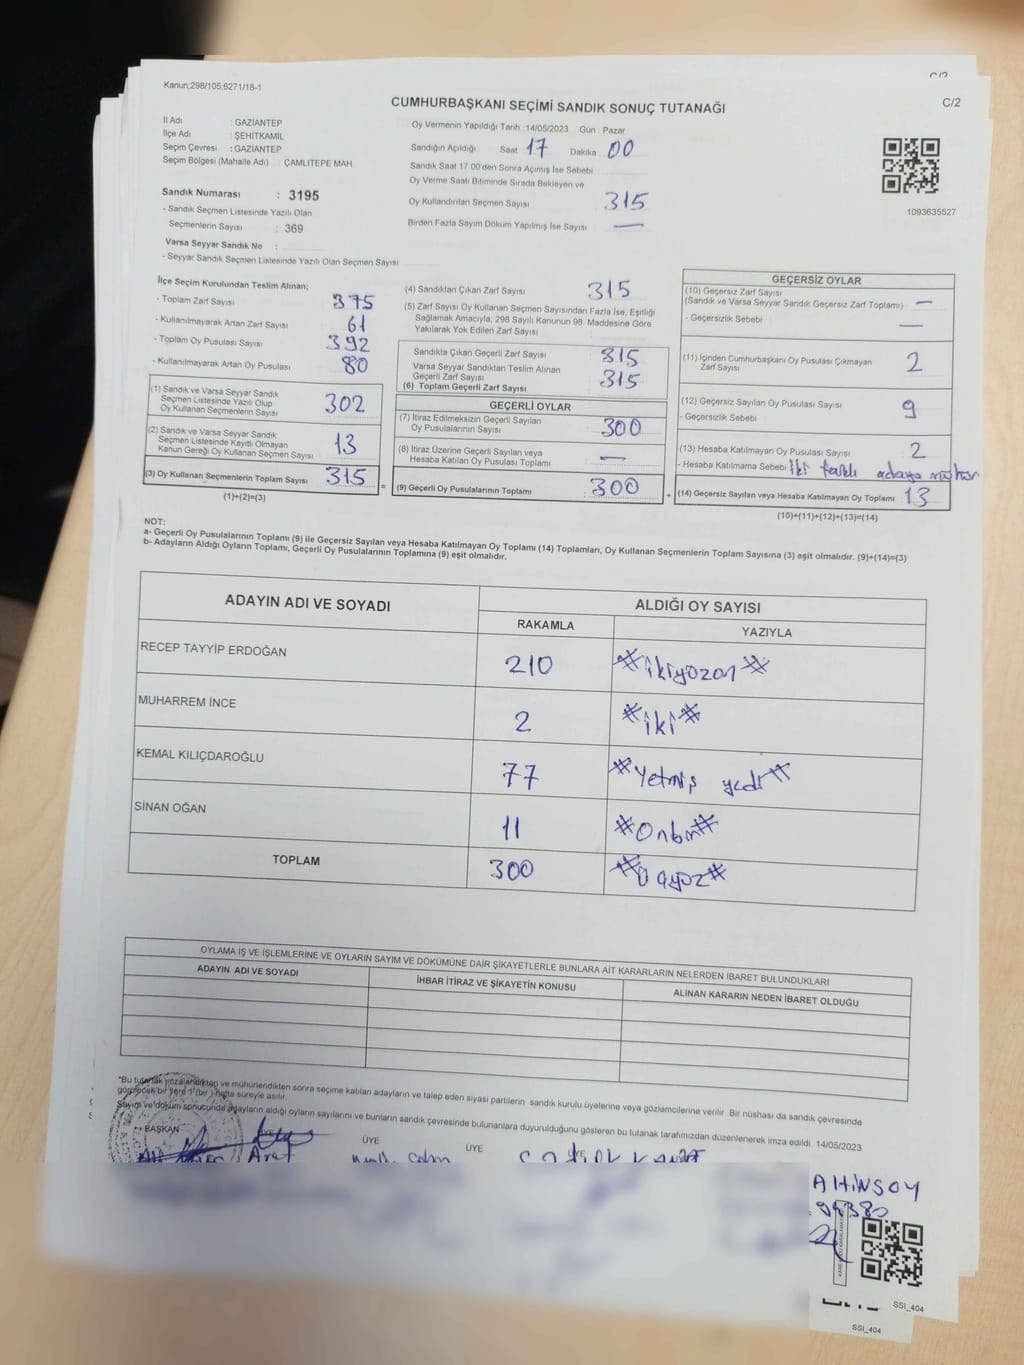 C/2
Kanun;298/105;6271/18-1
C/2
CUMHURBAŞKANI SEÇİMİ SANDIK SONUÇ TUTANAĞI
İl Adı : GAZİANTEP
İlçe Adı : ŞEHİTKAMİL
Seçim Çevresi : GAZİANTEP
Seçim Bölgesi (Mahalle Adı) : ÇAMLITEPE MAH
Sandık Numarası : 3195
- Sandık Seçmen Listesinde Yazılı Olan
Seçmenlerin Sayısı : 369
Varsa Seyyar Sandık No :
- Seyyar Sandık Seçmen Listesinde Yazılı Olan Seçmen Sayısı
Oy Vermenin Yapıldığı Tarih 14/05/2023 Gün : Pazar
Sandığın Açıldığı Saat 17 Dakika 00
Sandık Saat 17.00'den Sonra Açımış İse Sebebi
Oy Verme Saati Bitiminde Sırada Bekleyen ve
Oy Kullandırılan Seçmen Sayısı 315
Birden Fazla Sayım Döküm Yapılmış İse Sayısı —
1093635527
İlçe Seçim Kurulundan Teslim Alınan:
- Toplam Zarf Sayısı 375
- Kullanılmayarak Artan Zarf Sayısı 61
- Toplam Oy Pusulası Sayısı 392
- Kullanılmayarak Artan Oy Pusulası 80
(1) Sandık ve Varsa Seyyar Sandık
Seçmen Listesinde Yazılı Olup
Oy Kullanan Seçmenlerin Sayısı 302
(2) Sandık ve Varsa Seyyar Sandık
Seçmen Listesinde Kayıtlı Olmayan
Kanun Gereği Oy Kullanan Seçmen Sayısı 13
(3) Oy Kullanan Seçmenlerin Toplam Sayısı 315
(1)+(2)=(3)
(4) Sandıktan Çıkan Zarf Sayısı 315
(5) Zarf Sayısı Oy Kullanan Seçmen Sayısından Fazla İse, Eşitliği
Sağlamak Amacıyla, 298 Sayılı Kanunun 98. Maddesine Göre
Yakılarak Yok Edilen Zarf Sayısı
Sandıkta Çıkan Geçerli Zarf Sayısı 315
Varsa Seyyar Sandıktan Teslim Alınan
Geçerli Zarf Sayısı 315
(6) Toplam Geçerli Zarf Sayısı
GEÇERLİ OYLAR
(7) İtiraz Edilmeksizin Geçerli Sayılan
Oy Pusulalarının Sayısı 300
(8) İtiraz Üzerine Geçerli Sayılan veya
Hesaba Katılan Oy Pusulası Toplamı —
= (9) Geçerli Oy Pusulalarının Toplamı 300 +
GEÇERSİZ OYLAR
(10) Geçersiz Zarf Sayısı
(Sandık ve Varsa Seyyar Sandık Geçersiz Zarf Toplamı) : —
- Geçersizlik Sebebi : —
(11) İçinden Cumhurbaşkanı Oy Pusulası Çıkmayan
Zarf Sayısı 2
(12) Geçersiz Sayılan Oy Pusulası Sayısı 9
- Geçersizlik Sebebi :
(13) Hesaba Katılmayan Oy Pusulası Sayısı 2
- Hesaba Katılmama Sebebi : iki farklı adaya
(14) Geçersiz Sayılan veya Hesaba Katılmayan Oy Toplamı 13
(10)+(11)+(12)+(13)=(14)
NOT:
a- Geçerli Oy Pusulalarının Toplamı (9) ile Geçersiz Sayılan veya Hesaba Katılmayan Oy Toplamı (14) Toplamları, Oy Kullanan Seçmenlerin Toplam Sayısına (3) eşit olmalıdır. (9)+(14)=(3)
b- Adayların Aldığı Oyların Toplamı, Geçerli Oy Pusulalarının Toplamına (9) eşit olmalıdır.
ADAYIN ADI VE SOYADI ALDIĞI OY SAYISI
RAKAMLA YAZIYLA
RECEP TAYYİP ERDOĞAN 210 #ikiyüzon#
MUHARREM İNCE 2 #iki#
KEMAL KILIÇDAROĞLU 77 #Yetmiş yedi#
SİNAN OĞAN 11 #Onbir#
TOPLAM 300 #Üçyüz#
OYLAMA İŞ VE İŞLEMLERİNE VE OYLARIN SAYIM VE DÖKÜMÜNE DAİR ŞİKAYETLERLE BUNLARA AİT KARARLARIN NELERDEN İBARET BULUNDUKLARI
ADAYIN ADI VE SOYADI İHBAR İTİRAZ VE ŞİKAYETİN KONUSU ALINAN KARARIN NEDEN İBARET OLDUĞU
*Bu tutanak imzalandıktan ve mühürlendikten sonra seçime katılan adayların ve talep eden siyasi partilerin sandık kurulu üyelerine veya gözlemcilerine verilir. Bir nüshası da sandık çevresinde
görülecek bir yere 1 (bir ) hafta süreyle asılır.
Sayım ve döküm sonucunda adayların aldığı oyların sayılarını ve bunların sandık çevresinde bulunanlara duyurulduğunu gösteren bu tutanak tarafımızdan düzenlenerek imza edildi. 14/05/2023
BAŞKAN ÜYE ÜYE ÜYE
SSI_404
SSI_404